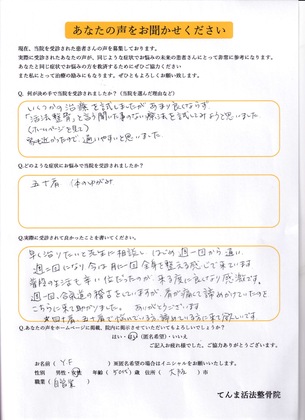 あなたの声をお聞かせください
現在、当院を受診された患者さんの声を募集しております。
実際に受診されたあなたの声が、同じような症状でお悩みの未来の患者さんにとって非常に参考になります。
あなたと同じ症状でお悩みの方を救済するためにぜひご協力ください
また私にとって治療の励みにもなります。ぜひともよろしくお願い致します。
Q. 何が決め手で当院を受診されましたか?（当院を選んだ理由など）
いくつか治療を試しましたがあまり良くならず、
「活法整骨」と言う聞いた事のない療法を試してみようと思いました
(ホームページを見て)
家も近かったので、通いやすいと思いました。
Q. どのような症状にお悩みで当院を受診されましたか?
五十肩 体のゆがみ
Q. 実際に受診されて良かったことを書いてください。
早く治りたいと先生に相談し はじめ週一回から通い
週二回になり今は月に一回全身を整える感じで来ています
普段の生活も辛い位だったが 来る度に良くなり感激です。
週一回、合気道の稽古をしていますが、肩が痛くて諦めかけていたのを
こちらに来て助かりました。ありがとうございます
五十肩で悩んでいる方、諦めている方に試して欲しいです
Q. あなたの声をホームページに掲載、院内に掲示させていただいてもよろしいでしょうか?
はい・(匿名希望)・いいえ
ご記入お疲れ様でした。ご協力ありがとうございます。
お名前（ Y.F ）※匿名希望の場合はイニシャルをお願いいたします。
性別（ 男性・女性 ） 年齢（ 50代 ）歳 住所（ 大阪 ）市
職業（ 自営業 ）
てんま活法整骨院